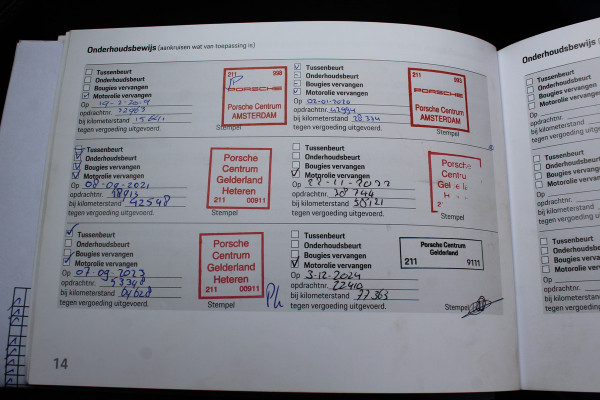 Onderhoudsbewijs (aankruisen wat van toepassing is)
Tussenbeurt
Onderhoudsbeurt
Bougies vervangen
Motorolie vervangen
Op 19-2-2019
opdrachtnr.
bij kilometerstand
tegen vergoeding uitgevoerd.
211 998
PORSCHE
Porsche Centrum
AMSTERDAM
Stempel
Tussenbeurt
Onderhoudsbeurt
Bougies vervangen
Motorolie vervangen
Op 02-01-2020
opdrachtnr.
bij kilometerstand 28.334
tegen vergoeding uitgevoerd.
211 983
PORSCHE
Porsche Centrum
AMSTERDAM
Stempel
Tussenbeurt
Onderhoudsbeurt
Bougies vervangen
Motorolie vervangen
Op 08-09-2021
opdrachtnr.
bij kilometerstand 42548
tegen vergoeding uitgevoerd.
Porsche
Centrum
Gelderland
Heteren
211 00911
Stempel
Tussenbeurt
Onderhoudsbeurt
Bougies vervangen
Motorolie vervangen
Op 22-11-2022
opdrachtnr. 30744
bij kilometerstand
tegen vergoeding uitgevoerd.
Porsche
Centru
Stempel
Tussenbeurt
Onderhoudsbeurt
Bougies vervangen
Motorolie vervangen
Op 07-09-2023
opdrachtnr. 53348
bij kilometerstand 64628
tegen vergoeding uitgevoerd.
Porsche
Centrum
Gelderland
Heteren
211 00911
Stempel
Tussenbeurt
Onderhoudsbeurt
Bougies vervangen
Motorolie vervangen
Op 3-12-2024
opdrachtnr. 22410
bij kilometerstand 77363
tegen vergoeding uitgevoerd.
Porsche Centrum
Gelderland
211 9111
Stempel
14
Onderhoudsbewijs
Tussenbeurt
Onderhoudsbeurt
Bougies vervangen
Motorolie vervangen
Op
opdrachtnr.
bij kilometerstand
tegen vergoeding